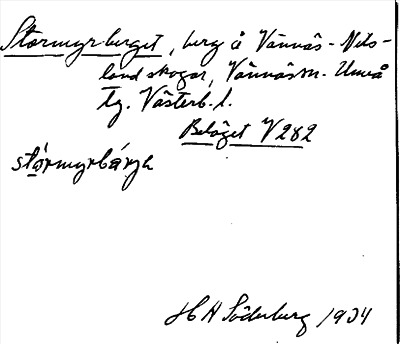 Stormyrberget, berg å Vännäs-Nils-
lund skogar, Vännäs sn. Umeå
tg. Västerb. l.
Beläget V 282
stórmyrbárgh
H A Söderberg 1934